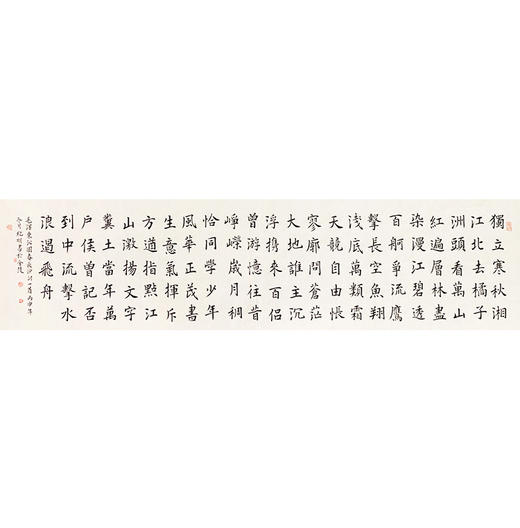 獨立寒秋湘
江北去橘子
洲頭看萬山
紅遍層林盡
染漫江碧透
百舸爭流鷹
擊長空魚翔
淺底萬類霜
天競自由悵
寥廓問蒼茫
大地誰主沉
浮携來百侶
曾游憶往昔
崢嶸歲月稠
恰同學少年
風華正茂書
生意氣揮斥
方遒指點江
山激揚文字
糞土當年萬
戶侯曾記否
到中流擊水
浪遏飛舟
毛澤東沁園春長沙詞一首丙申年
冬月紀明書於金陵